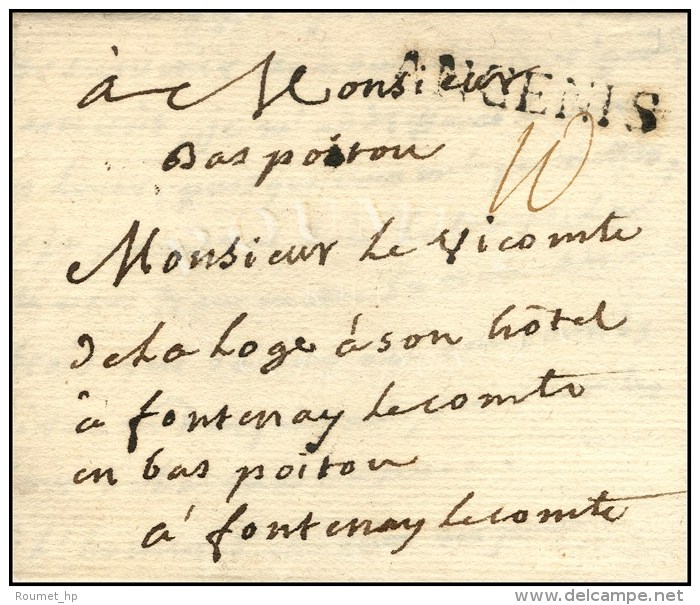 à Monsieur
ANCENIS
Bas poitou
10
Monsieur le vicomte
de La Loge à son hôtel
à fontenay lecomte
en bas poitou
à fontenay lecomte
Roumet_hp
delcampe.net